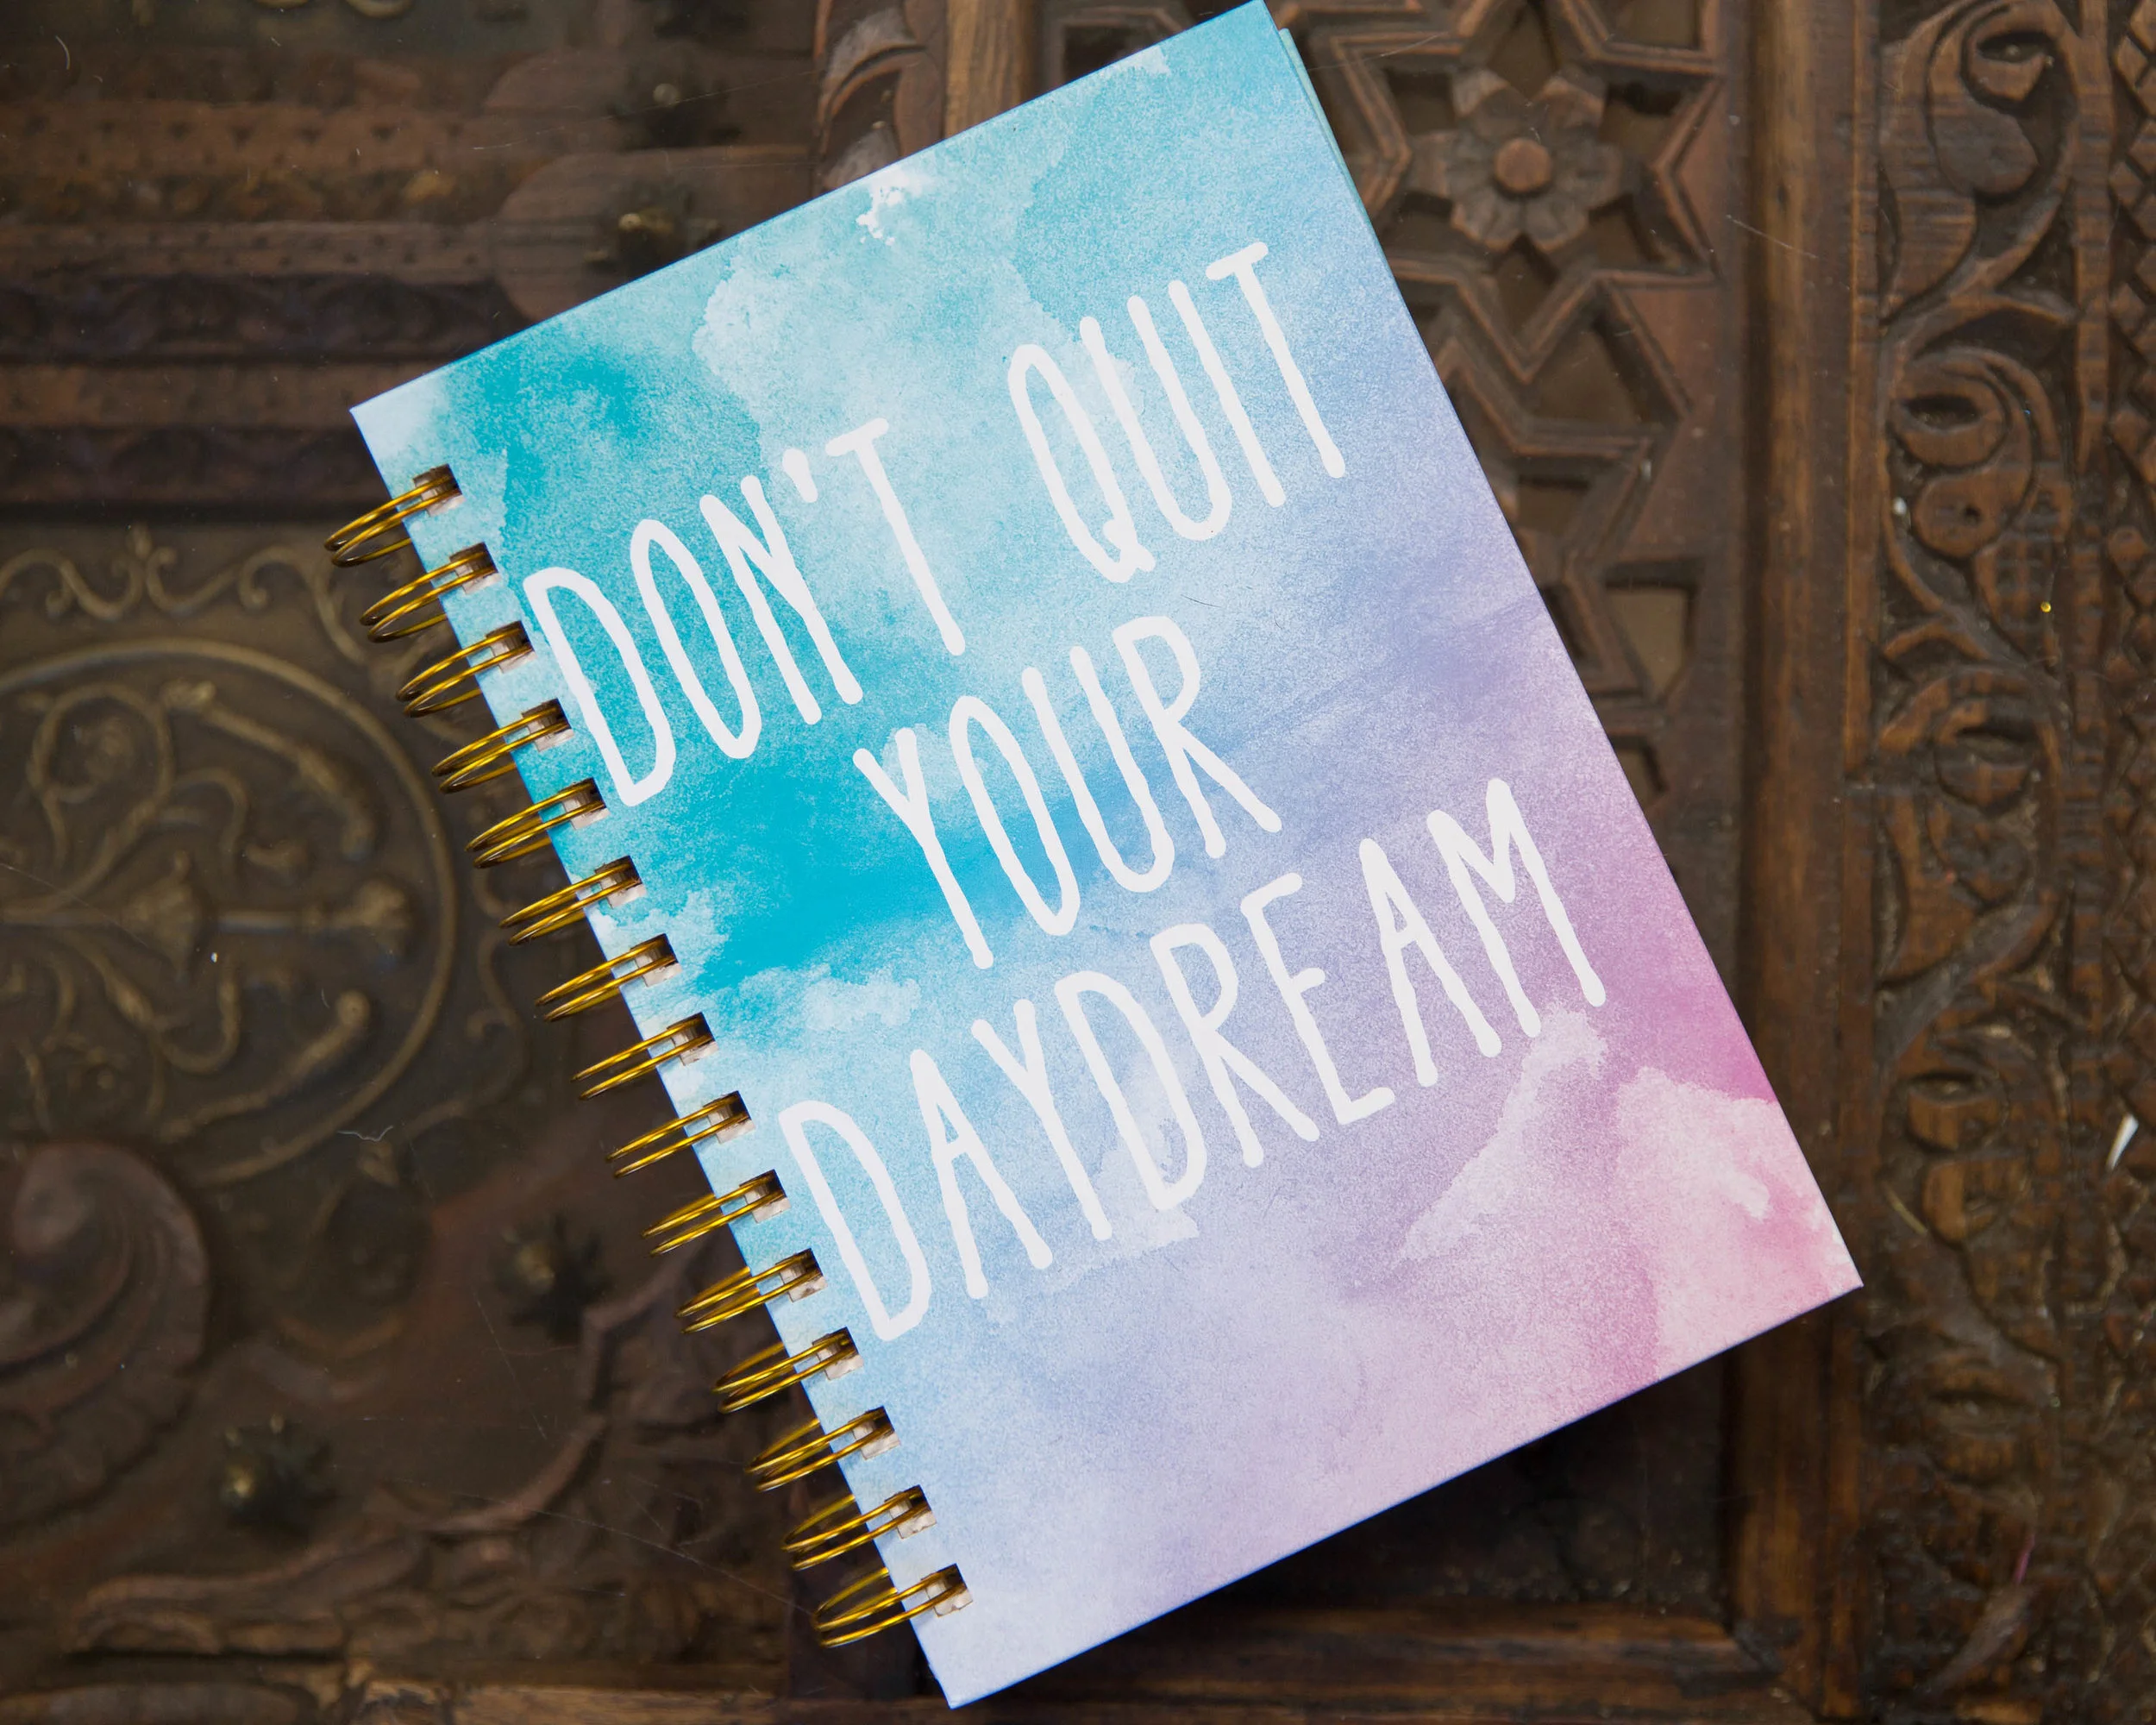 DON'T QUIT
YOUR
DAYDREAM